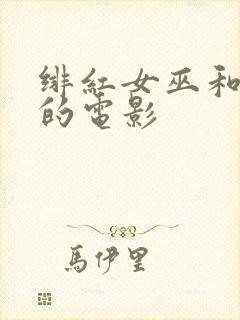 緋紅女巫和
的電影
馬伊里